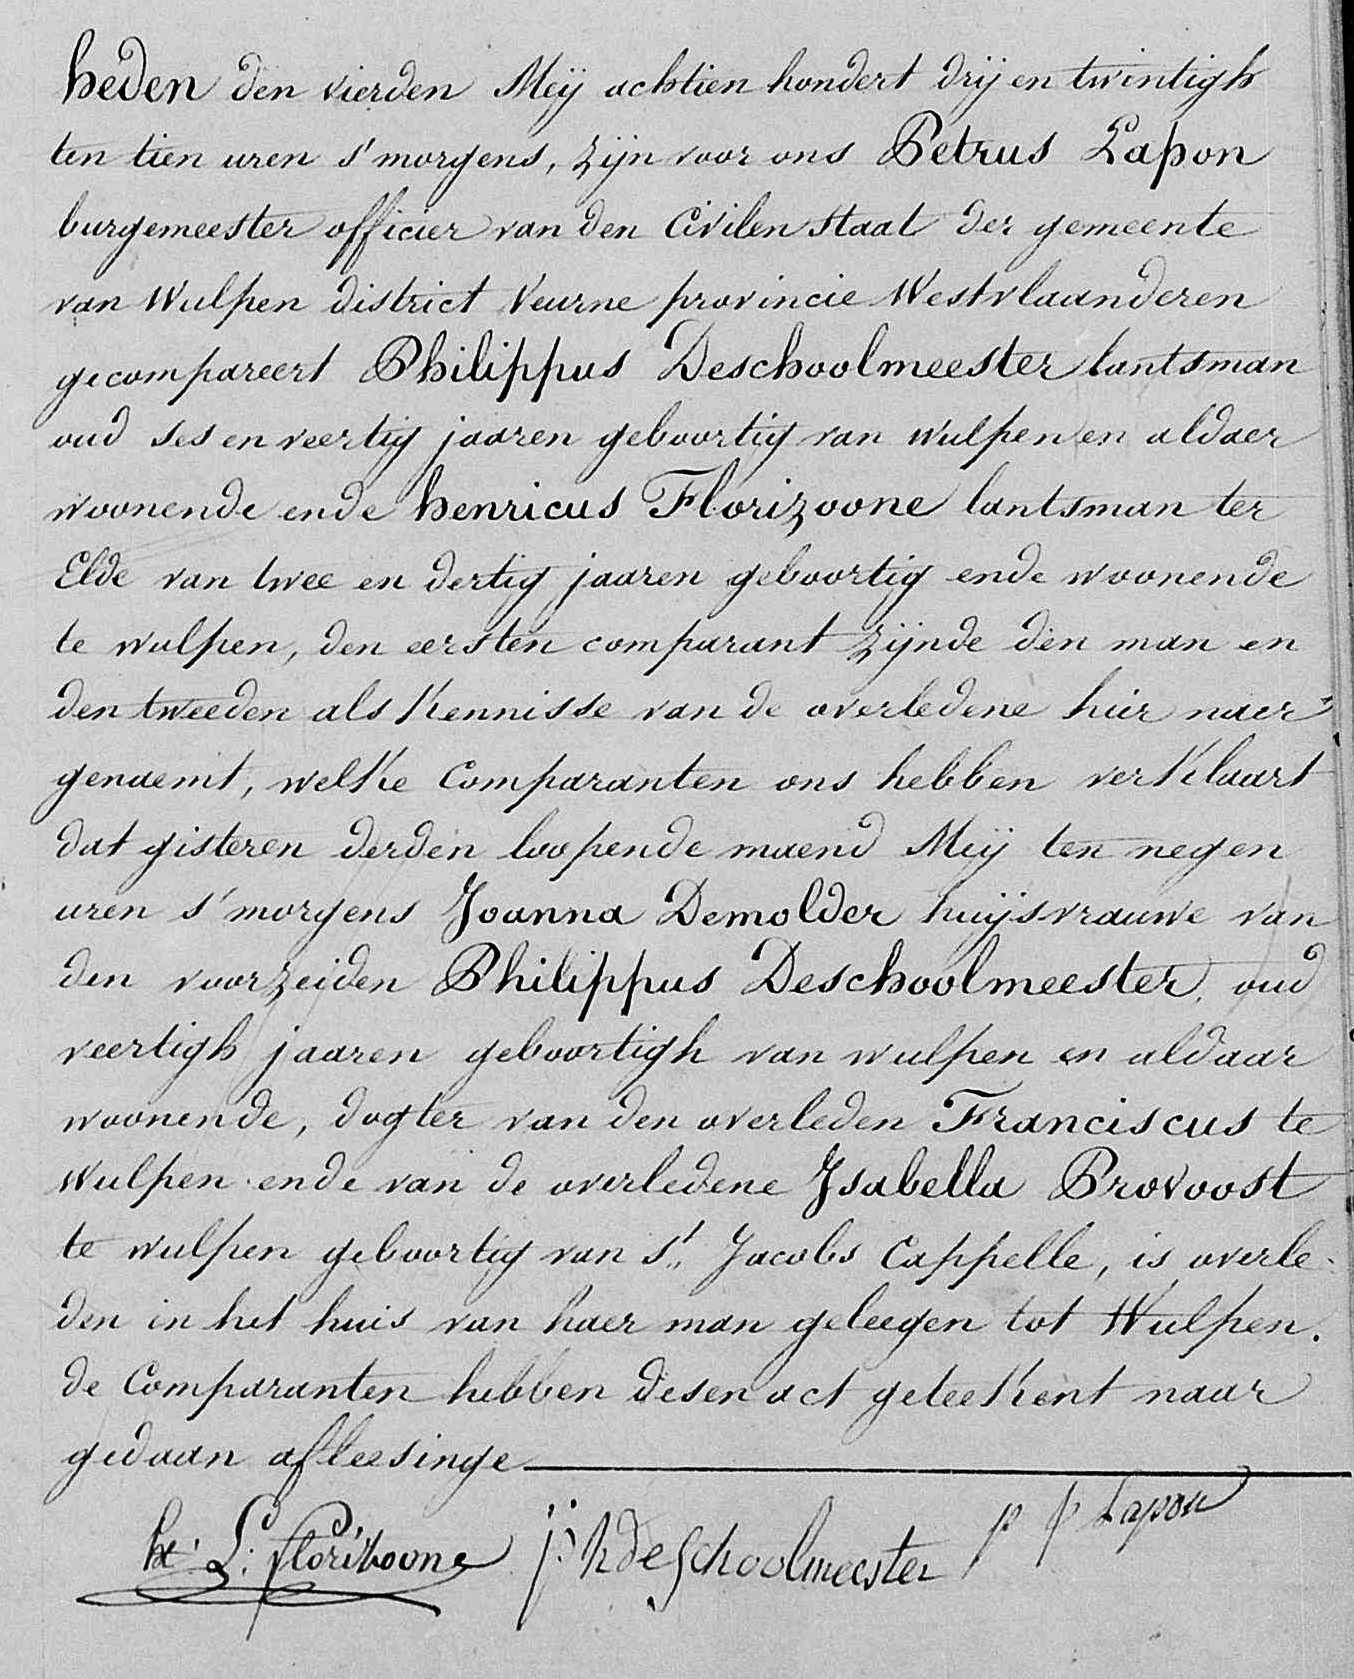 heden den vierden Meij achtien hondert drij en twintigh
ten tien uren s'morgens, zijn voor ons Petrus Lapon
burgemeester officier van den Civilen staat der gemeente
van Wulpen district Veurne provincie Westvlaanderen
gecompareert Philippus Deschoolmeester lantsman
oud ses en veertig jaaren geboortig van wulpen en aldaer
woonende ende henricus Florizoone lantsman ter
Elde van twee en dertig jaaren geboortig ende woonende
te wulpen, den eersten comparant zijnde den man en
den tweeden als Kennisse van de overledene hier naer
genaemt, welke Comparanten ons hebben verklaart
dat gisteren derden loopende maend Meij ten negen
uren s'morgens Joanna Demolder huijsvrauwe van
den voorzeiden Philippus Deschoolmeester, oud
veertigh jaaren geboortigh van wulpen en aldaar
woonende, dogter van den overleden Franciscus te
Wulpen ende van de overledene Ysabella Provoost
te wulpen geboortig van St. Jacobs Cappelle, is overle-
den in het huis van haer man geleegen tot Wulpen.
de Comparanten hebben desen act geteekent naar
gedaan afleesinge
he: L: florizoone j: h deschoolmeester p p Lapon